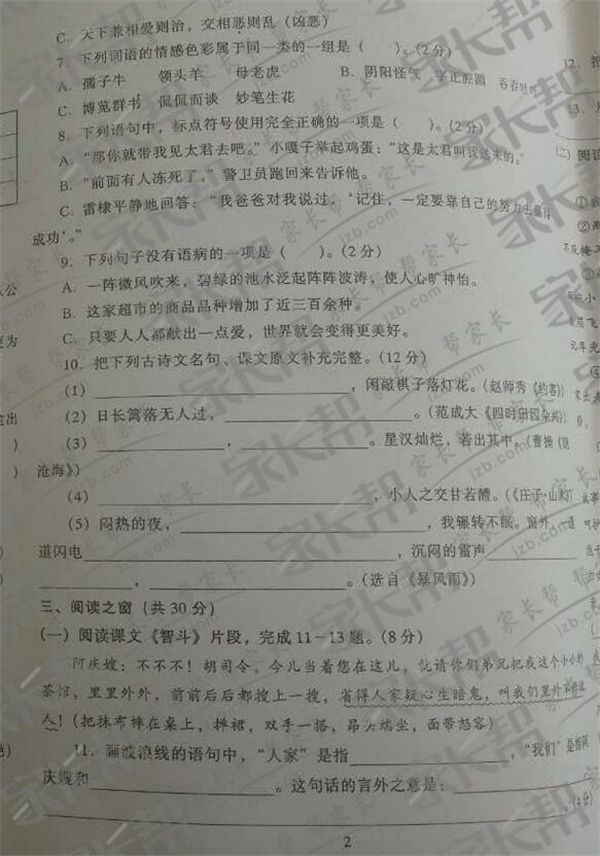 C. 天下兼相爱则治，交相恶则乱（凶恶）
7. 下列词语的情感色彩属于同一类的一组是（ ）。(2分)
A. 孺子牛 领头羊 母老虎 B. 阴阳怪气 字正腔圆
C. 博览群书 侃侃而谈 妙笔生花
8. 下列语句中，标点符号使用完全正确的一项是（ ）。(2分)
A. “那你就带我见太君去吧。”小嘎子举起鸡蛋：“这是太君叫我送来的。
B. “前面有人冻死了，”警卫员跑回来告诉他。
C. 雷棣平静地回答：“我爸爸对我说过，‘记住，一定要靠自己的努力去赢得
成功’。”
9. 下列句子没有语病的一项是（ ）。(2分)
A. 一阵微风吹来，碧绿的池水泛起阵阵波涛，使人心旷神怡。
B. 这家超市的商品品种增加了近三百余种。
C. 只要人人都献出一点爱，世界就会变得更美好。
10. 把下列古诗文名句、课文原文补充完整。(12分)
(1) ，闲敲棋子落灯花。(赵师秀《约客》)
(2) 日长篱落无人过， 。(范成大《四时田园杂兴》)
(3) ， 。星汉灿烂，若出其中。(曹操《观
沧海》)
(4) ，小人之交甘若醴。(《庄子·山木》)
(5) 闷热的夜， ，我辗转不眠。窗外，
道闪电 ，沉闷的雷声
， 。(选自《暴风雨》)
三、阅读之窗（共30分）
(一) 阅读课文《智斗》片段，完成11－13题。(8分)
阿庆嫂：不不不！胡司令，今儿当着您在这儿，就请你们弟兄把我这个小小的
茶馆，里里外外，前前后后都搜上一搜，省得人家疑心生暗鬼，叫我们里外不好做
人！(把抹布摔在桌上，掸裙，双手一搭，昂头端坐，面带怒容)
11. 画波浪线的语句中，“人家”是指 ，“我们”是指阿
庆嫂和 。这句话的言外之意是：
。(4分)
2
家长帮
jzb.com